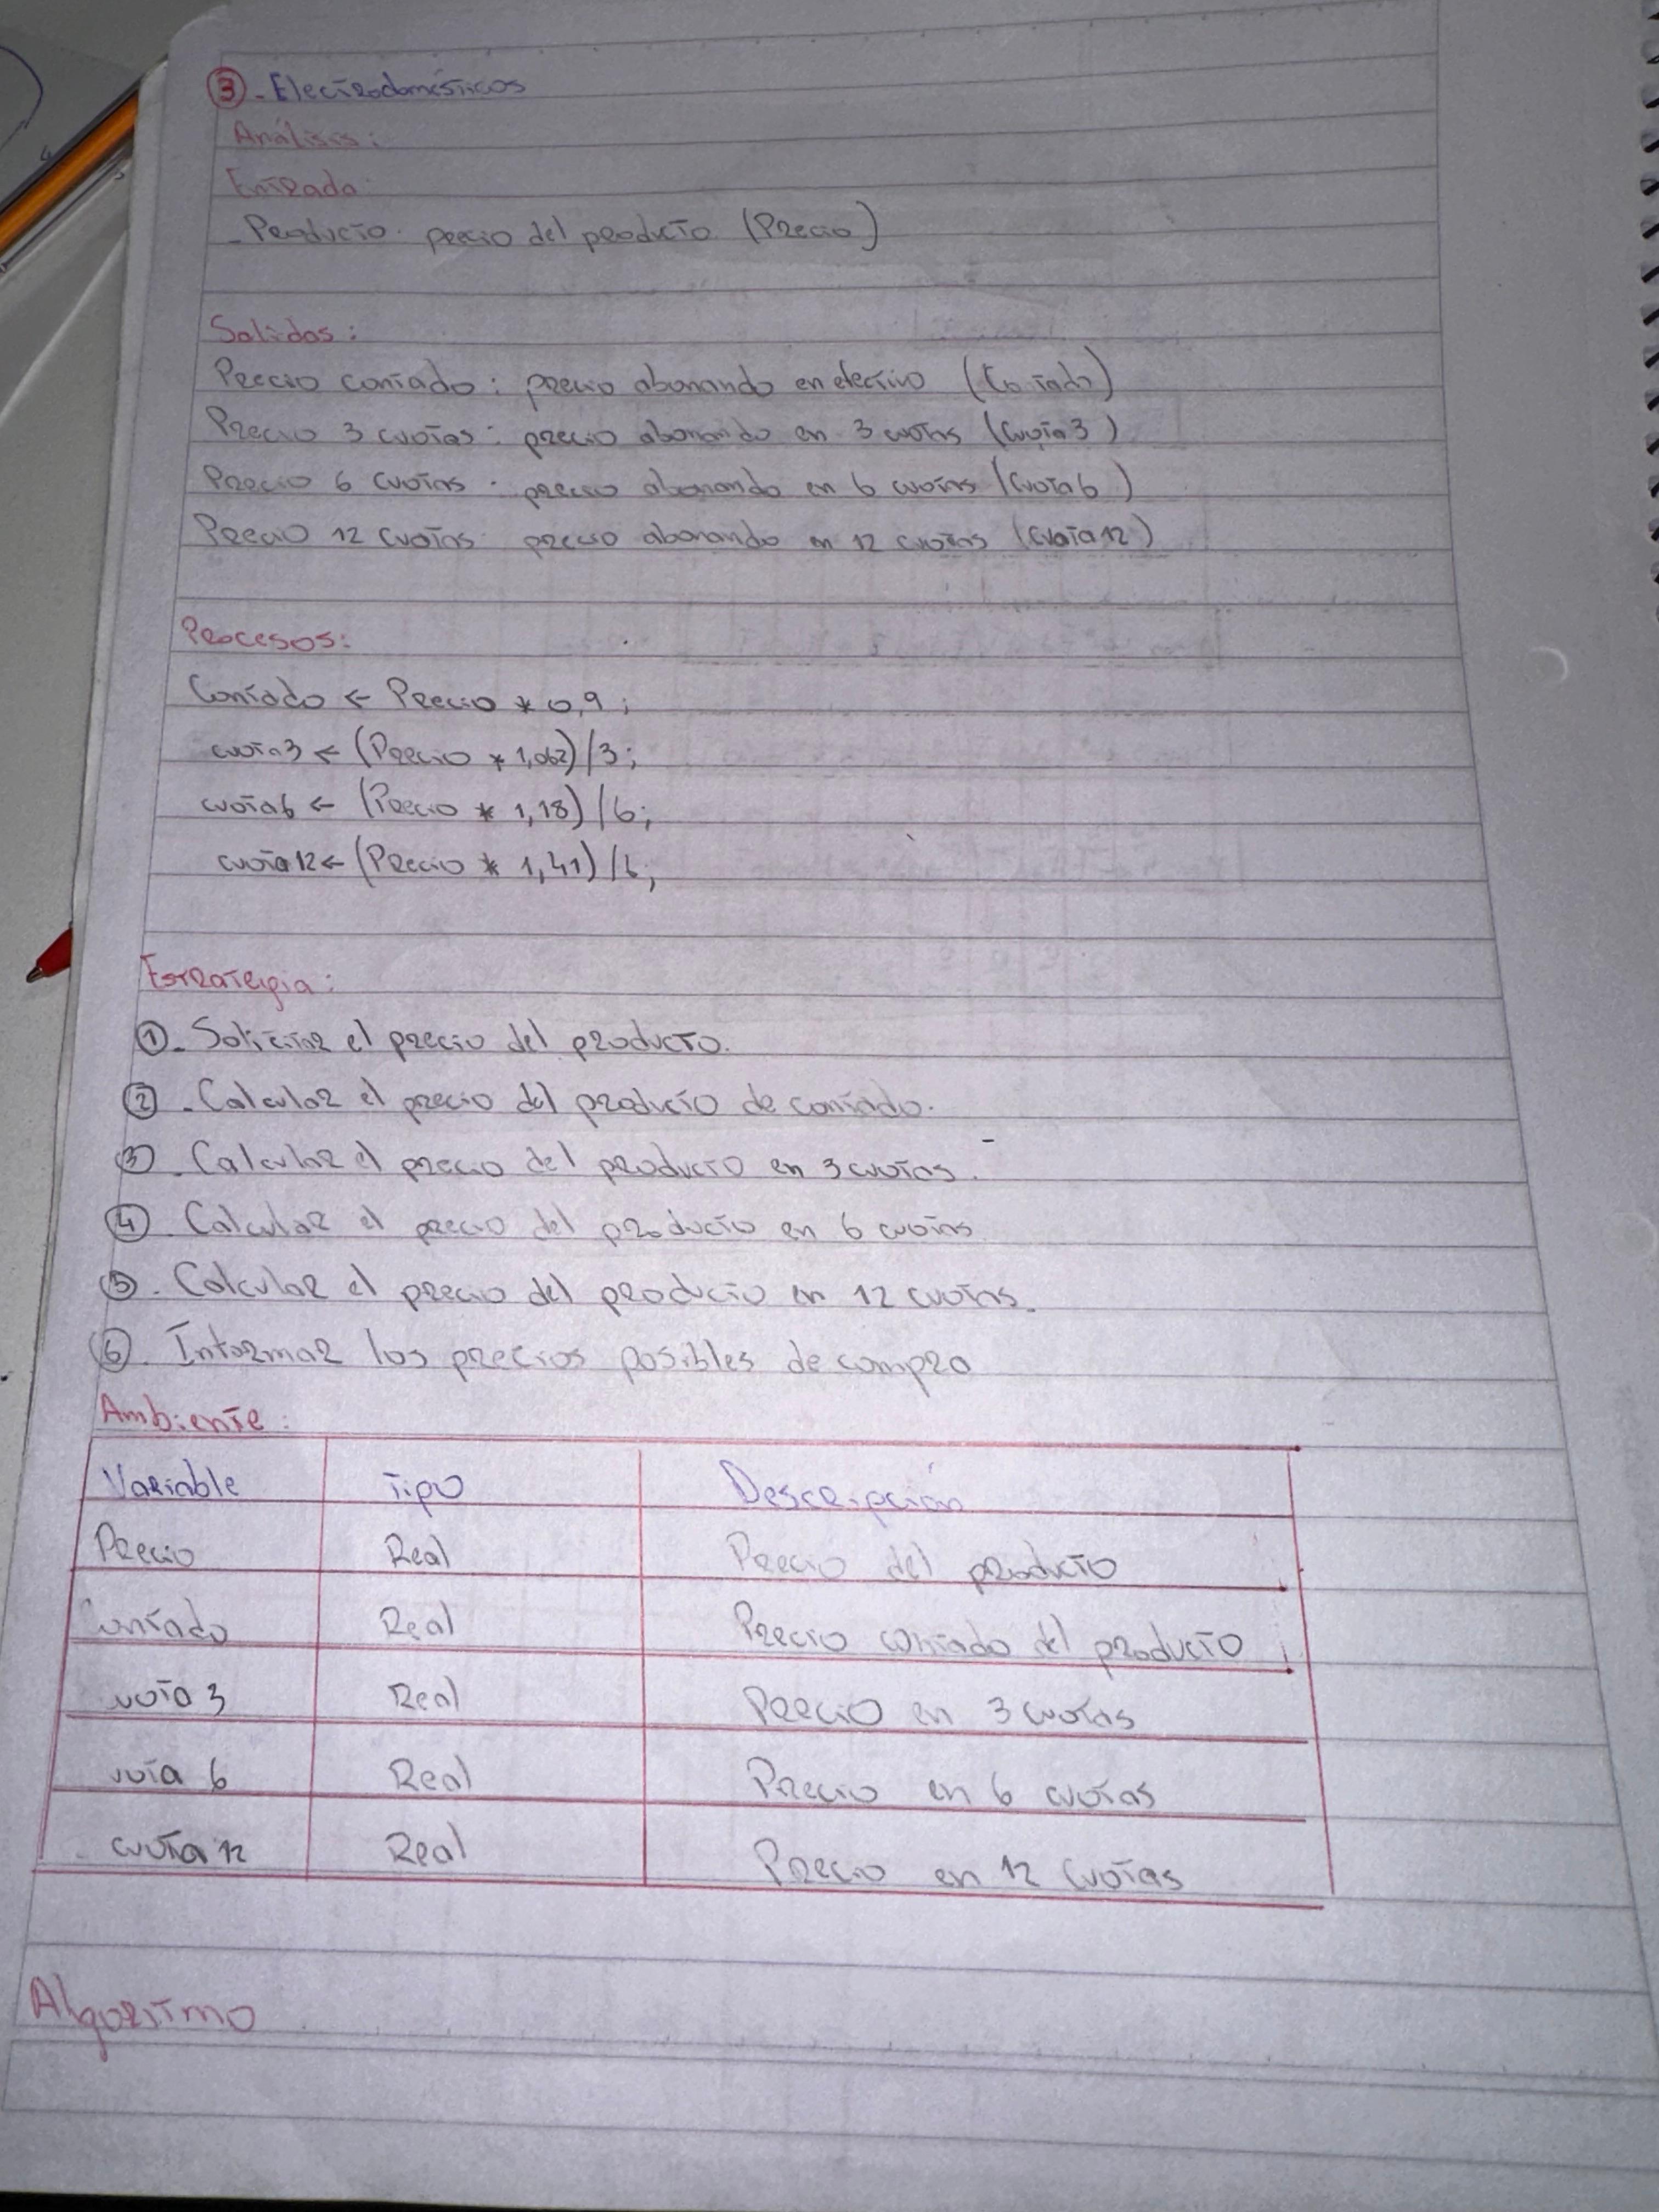 3. Electrodomésticos
Análisis:
Entrada:
- Producto: precio del producto (Precio)
Salidas:
Precio contado: precio abonando en efectivo (Contado)
Precio 3 cuotas: precio abonando en 3 cuotas (Cuota3)
Precio 6 cuotas: precio abonando en 6 cuotas (Cuota6)
Precio 12 cuotas: precio abonando en 12 cuotas (Cuota12)
Procesos:
Contado ← Precio * 0,9;
cuota3 ← (Precio * 1,062)/3;
cuota6 ← (Precio * 1,18)/6;
cuota12 ← (Precio * 1,41)/6;
Estrategia:
1. Solicitar el precio del producto.
2. Calcular el precio del producto de contado.
3. Calcular el precio del producto en 3 cuotas.
4. Calcular el precio del producto en 6 cuotas
5. Calcular el precio del producto en 12 cuotas.
6. Informar los precios posibles de compra
Ambiente:
Variable Tipo Descripción
Precio Real Precio del producto
Contado Real Precio contado del producto
cuota 3 Real Precio en 3 cuotas
cuota 6 Real Precio en 6 cuotas
cuota 12 Real Precio en 12 cuotas
Algoritmo